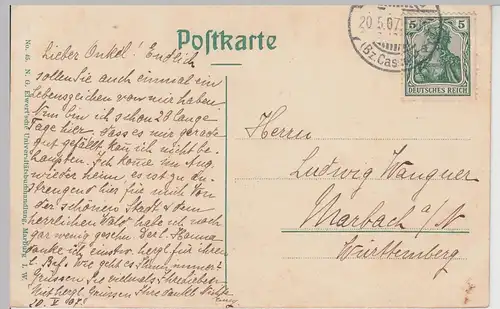 Postkarte
20.5.07
(Bz. Cas
5 5
DEUTSCHES REICH
No. 45. N. G. Elwert'sche Universitätsbuchhandlung, Marburg i. W.
Lieber Onkel! Endlich
sollen Sie auch einmal ein
Lebenszeichen von mir haben
Nun bin ich schon 28 lange
Tage hier, dass es mir gerade
gut gefällt kann ich nicht be-
haupten. Ich komme im Aug.
wieder heim es ist zu an-
strengend hier für mich Von
der schönen Stadt & dem
herrlichen Wald habe ich noch
gar wenig gesehn. Der l. Hanna
danke ich einstw. herzl für ihren
l. Bf. Wie geht es Ihnen immer?
Grüssen Sie vielmals Ihre Lieben
Mit herzl. Grüssen Ihre dankb. Nichte
20. V. 07.
Herrn
Ludwig Wangner
Marbach a/N
Württemberg